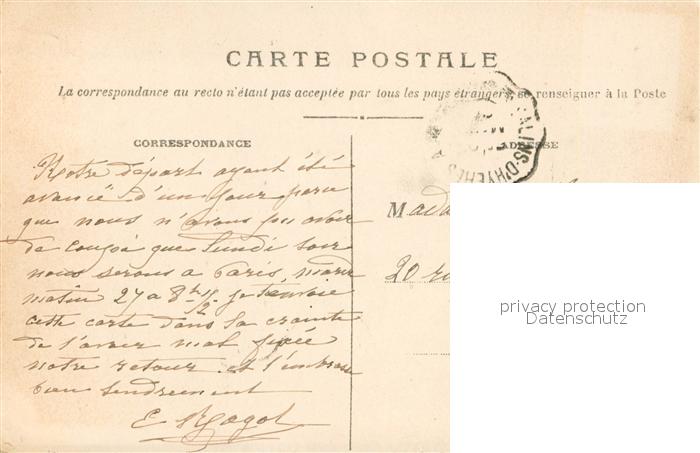 CARTE POSTALE
La correspondance au recto n'étant pas acceptée par tous les pays étrangers, se renseigner à la Poste
CORRESPONDANCE
ADRESSE
SALINS-D'HYÈRES A
Notre départ ayant été
avancé d'un jour parce
que nous n'avons pu avoir
de congé que Lundi soir
nous serons à Paris, mardi
matin 27 a 8h 1/2. je t'envoie
cette carte dans la crainte
de l'avoir mal fixée
notre retour et t'embrasse
bien tendrement
E
Mada
20
privacy protection
Datenschutz